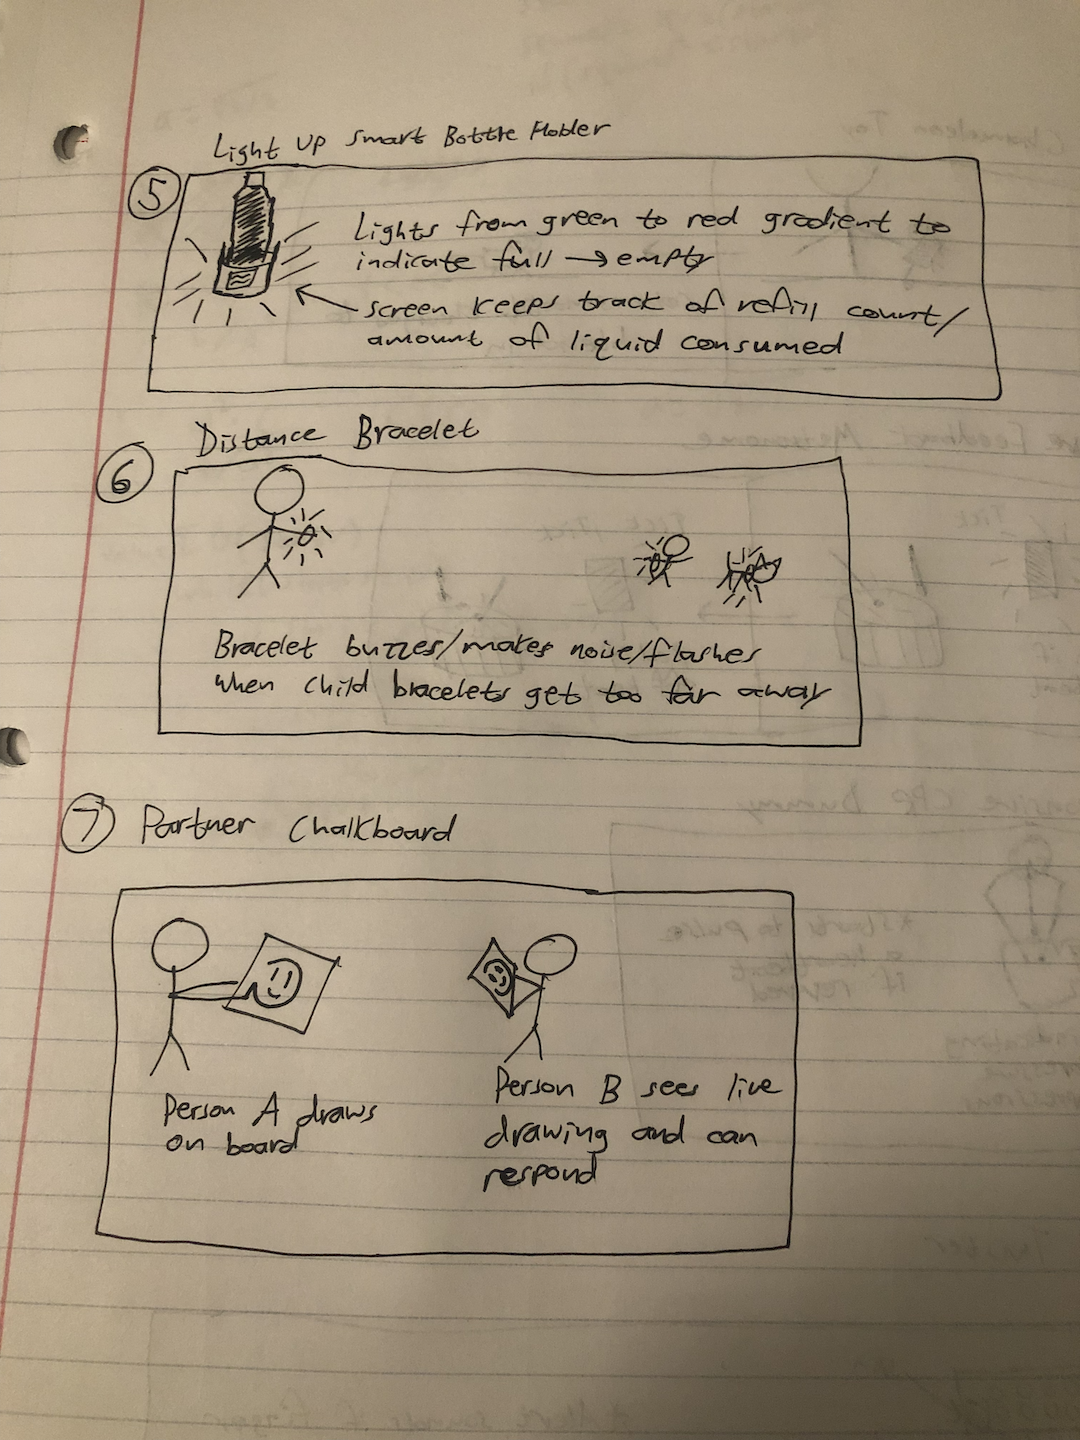 Light Up Smart Bottle Holder
5
Lights from green to red gradient to
indicate full → empty
screen keeps track of refill count/
amount of liquid consumed
Distance Bracelet
6
Bracelet buzzes/makes noise/flashes
when child bracelets get too far away
7 Partner Chalkboard
Person A draws
on board
Person B sees live
drawing and can
respond